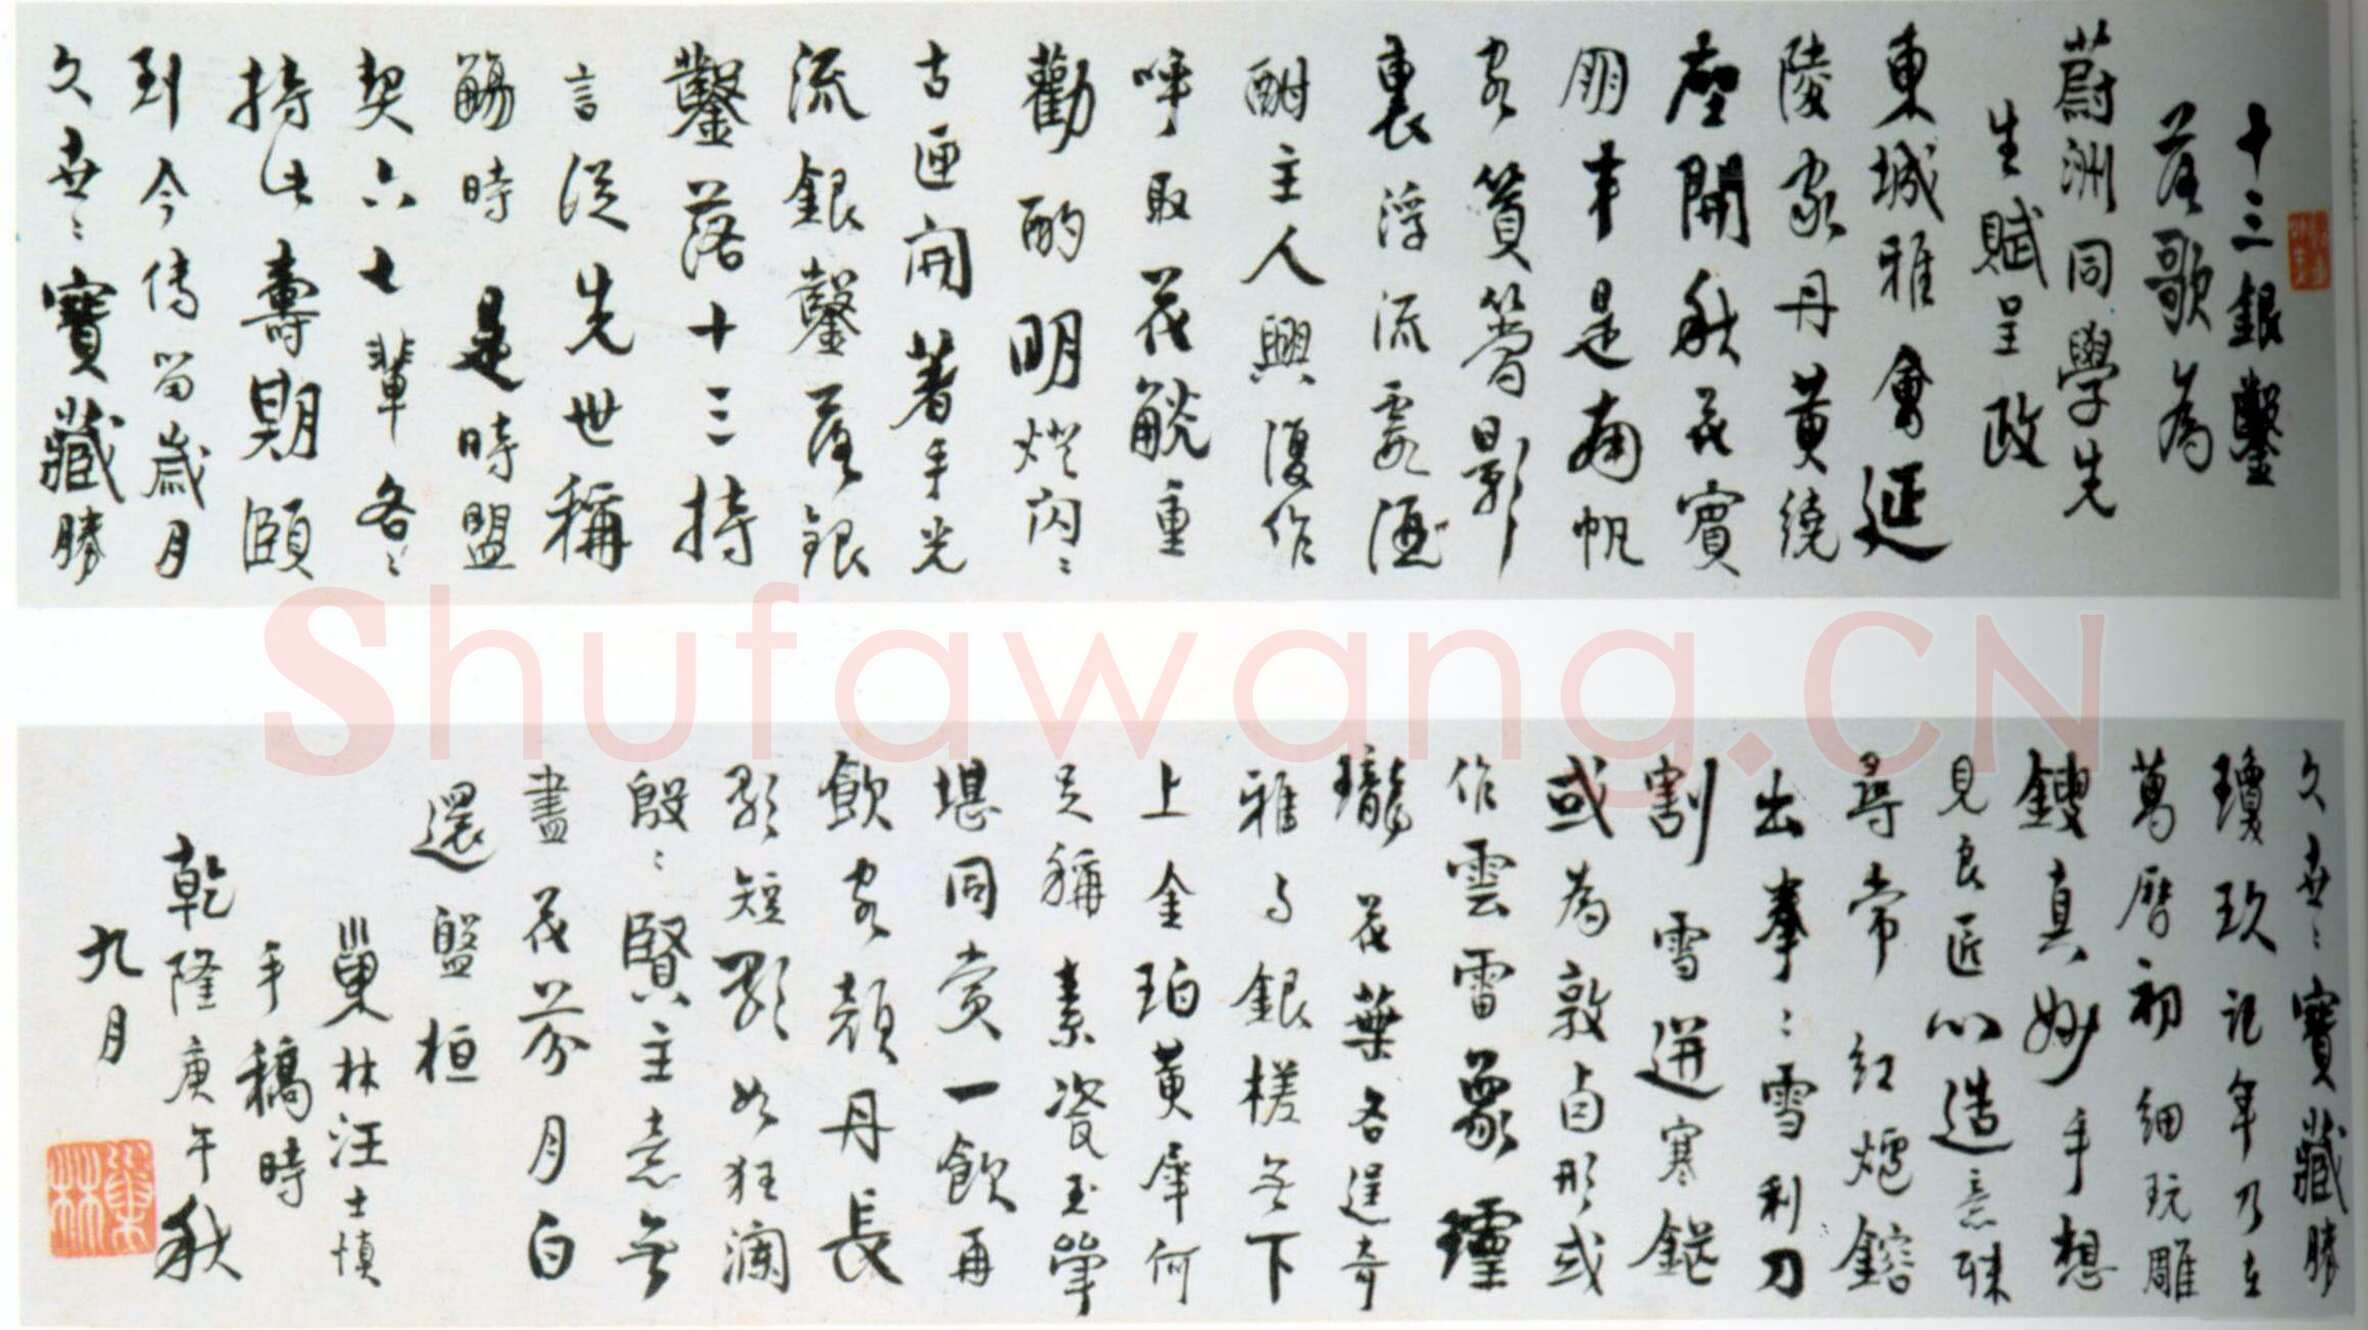 十三銀鑿
落歌為
蔚洲同學先
生賦呈政
東城雅會延
陵家丹黃繞
座開秋花賓
朋半是南帆
客篔簹影
裏浮流霞酒
酣主人興復作
呼取花觥重
勸酌明燈閃〻
古匣開著手光
流銀鑿落銀
鑿落十三持
言從先世稱
觴時是時盟
契六七輩各〻
持此壽期頤
到今傳留歲月
久世〻寶藏勝
久世〻寶藏勝
瓊玖記年乃在
萬曆初細玩雕
鎪真妙手想
見良匠心造意殊
尋常紅爐鎔
出拳〻雪利刀
割雪迸寒鋩
或為敦卣形或
作雲雷象
瓏花葉各逞奇
雅與銀槎無下
上金珀黃犀何
足稱素瓷玉斝
堪同賞一飲再
飲客顏丹長
歌短歌如狂瀾
殷〻賢主意無
盡花芬月白
還盤桓
巢林汪士慎
手稿時
乾隆庚午秋
九月
巢林
Shufawang.CN